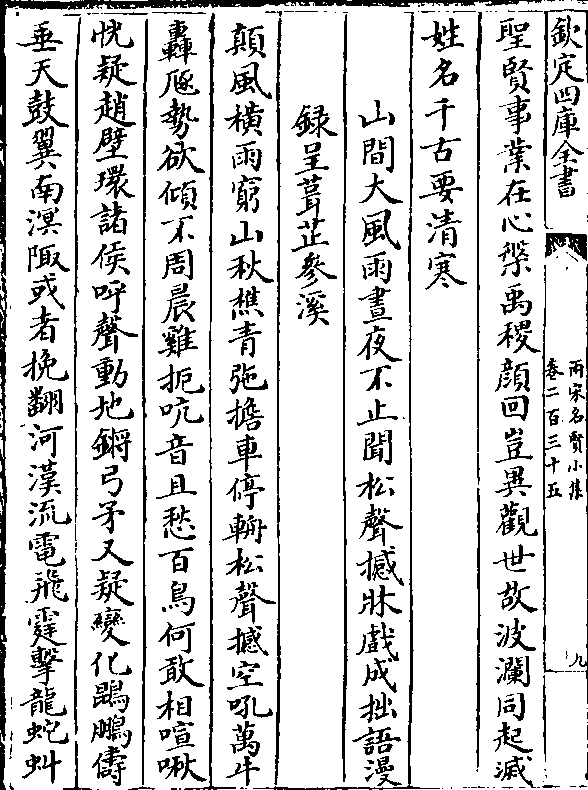 欽定四庫全書
兩宋名賢小集
卷二百三十五
九
聖賢事業在心槃禹稷顔回豈異觀世故波瀾同起滅
姓名千古要清寒
山間大風雨晝夜不止聞松聲撼牀戲成拙語漫
録呈葺芷參溪
顛風橫雨窮山秋樵青弛擔車停輈松聲撼空吼萬牛
轟豗勢欲傾不周晨雞扼吭音且愁百鳥何敢相喧啾
恍疑趙壁環諸侯呼聲動地鏘弓矛又疑變化鵾鵬儔
垂天鼓翼南溟陬或者挽翻河漢流電飛霆擊龍蛇虯